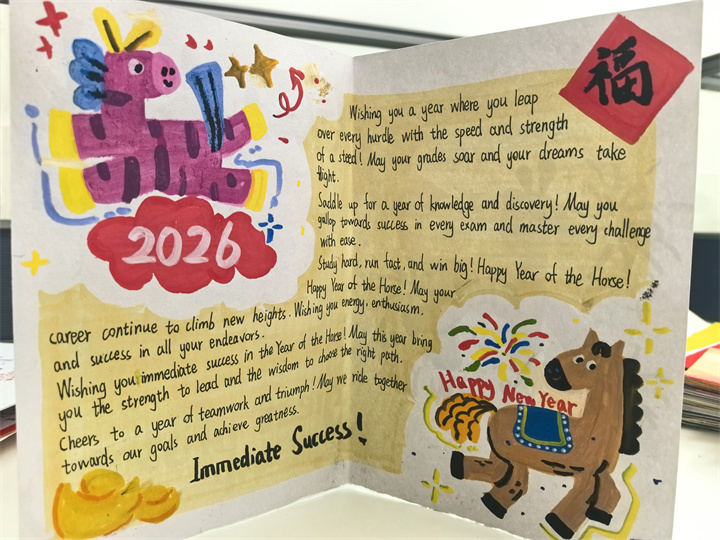 福
Wishing you a year where you leap
over every hurdle with the speed and strength
of a steed! May your grades soar and your dreams take
flight.
Saddle up for a year of knowledge and discovery! May you
gallop towards success in every exam and master every challenge
with ease.
Study hard, run fast, and win big! Happy Year of the Horse!
2026
Happy Year of the Horse! May your
career continue to climb new heights. Wishing you energy, enthusiasm,
and success in all your endeavors.
Wishing you immediate success in the Year of the Horse! May this year bring
you the strength to lead and the wisdom to choose the right path.
Cheers to a year of teamwork and triumph! May we ride together
towards our goals and achieve greatness.
Immediate Success!
Happy New Year